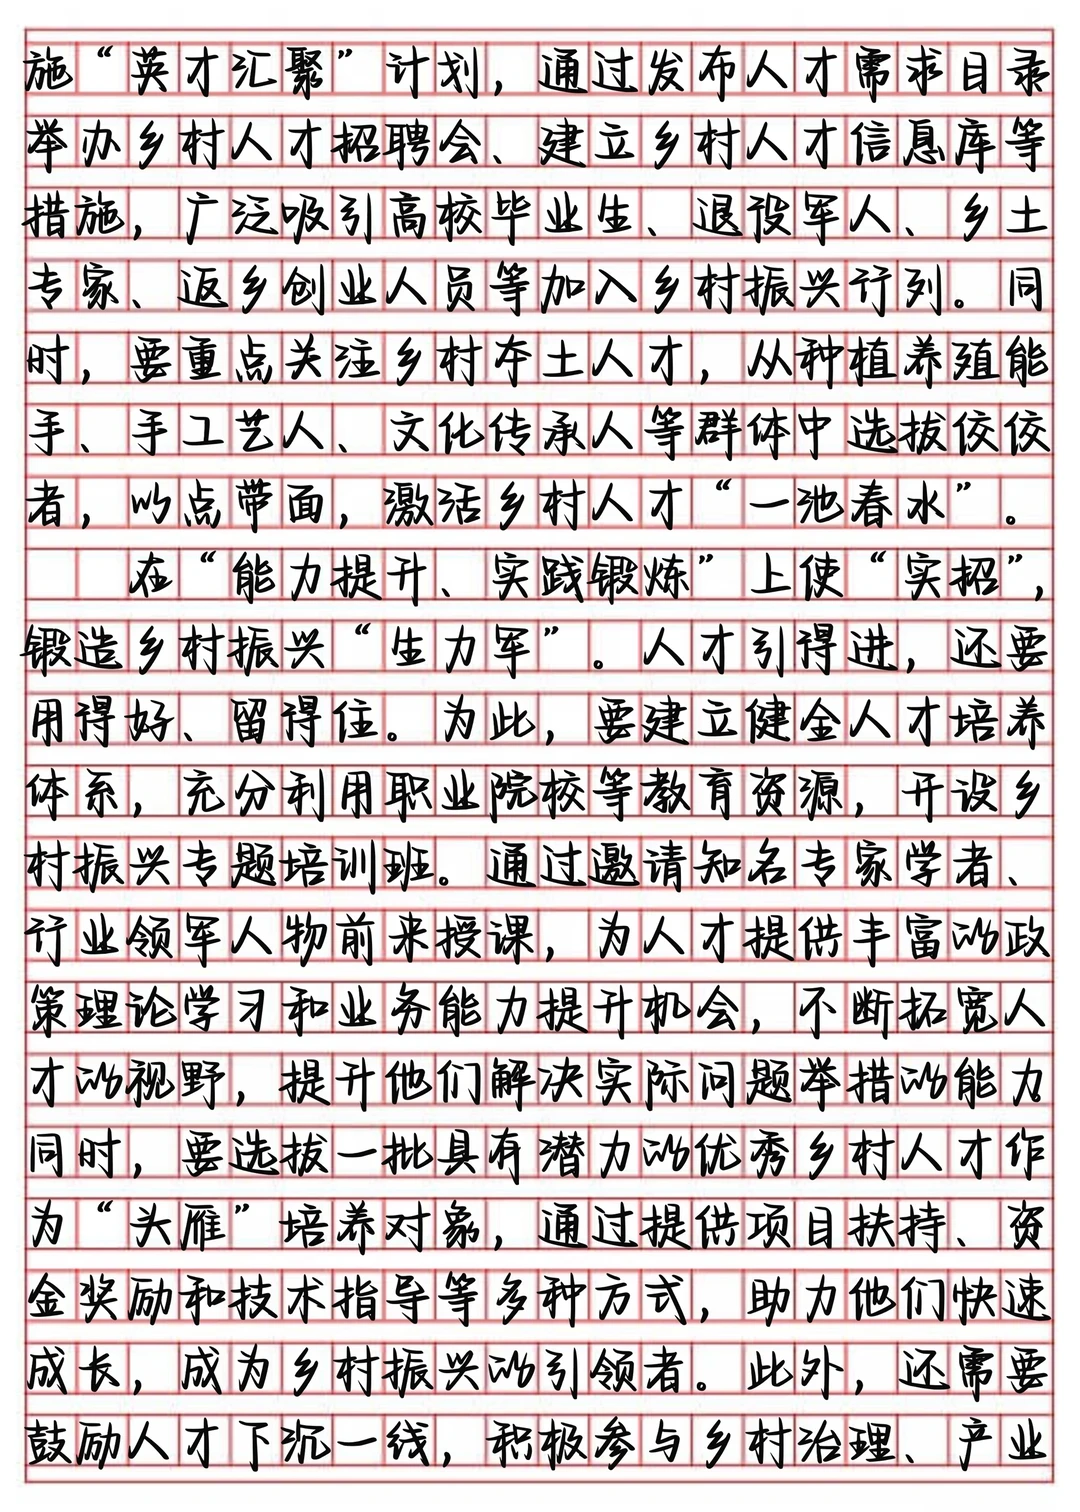 施“英才汇聚”计划，通过发布人才需求目录
举办乡村人才招聘会、建立乡村人才信息库等
措施，广泛吸引高校毕业生、退役军人、乡土
专家、返乡创业人员等加入乡村振兴行列。同
时，要重点关注乡村本土人才，从种植养殖能
手、手工艺人、文化传承人等群体中选拔佼佼
者，以点带面，激活乡村人才“一池春水”。
在“能力提升、实践锻炼”上使“实招”，
锻造乡村振兴“生力军”。人才引得进，还要
用得好、留得住。为此，要建立健全人才培养
体系，充分利用职业院校等教育资源，开设乡
村振兴专题培训班。通过邀请知名专家学者、
行业领军人物前来授课，为人才提供丰富的政
策理论学习和业务能力提升机会，不断拓宽人
才的视野，提升他们解决实际问题举措的能力。
同时，要选拔一批具有潜力的优秀乡村人才作
为“头雁”培养对象，通过提供项目扶持、资
金奖励和技术指导等多种方式，助力他们快速
成长，成为乡村振兴的引领者。此外，还需要
鼓励人才下沉一线，积极参与乡村治理、产业